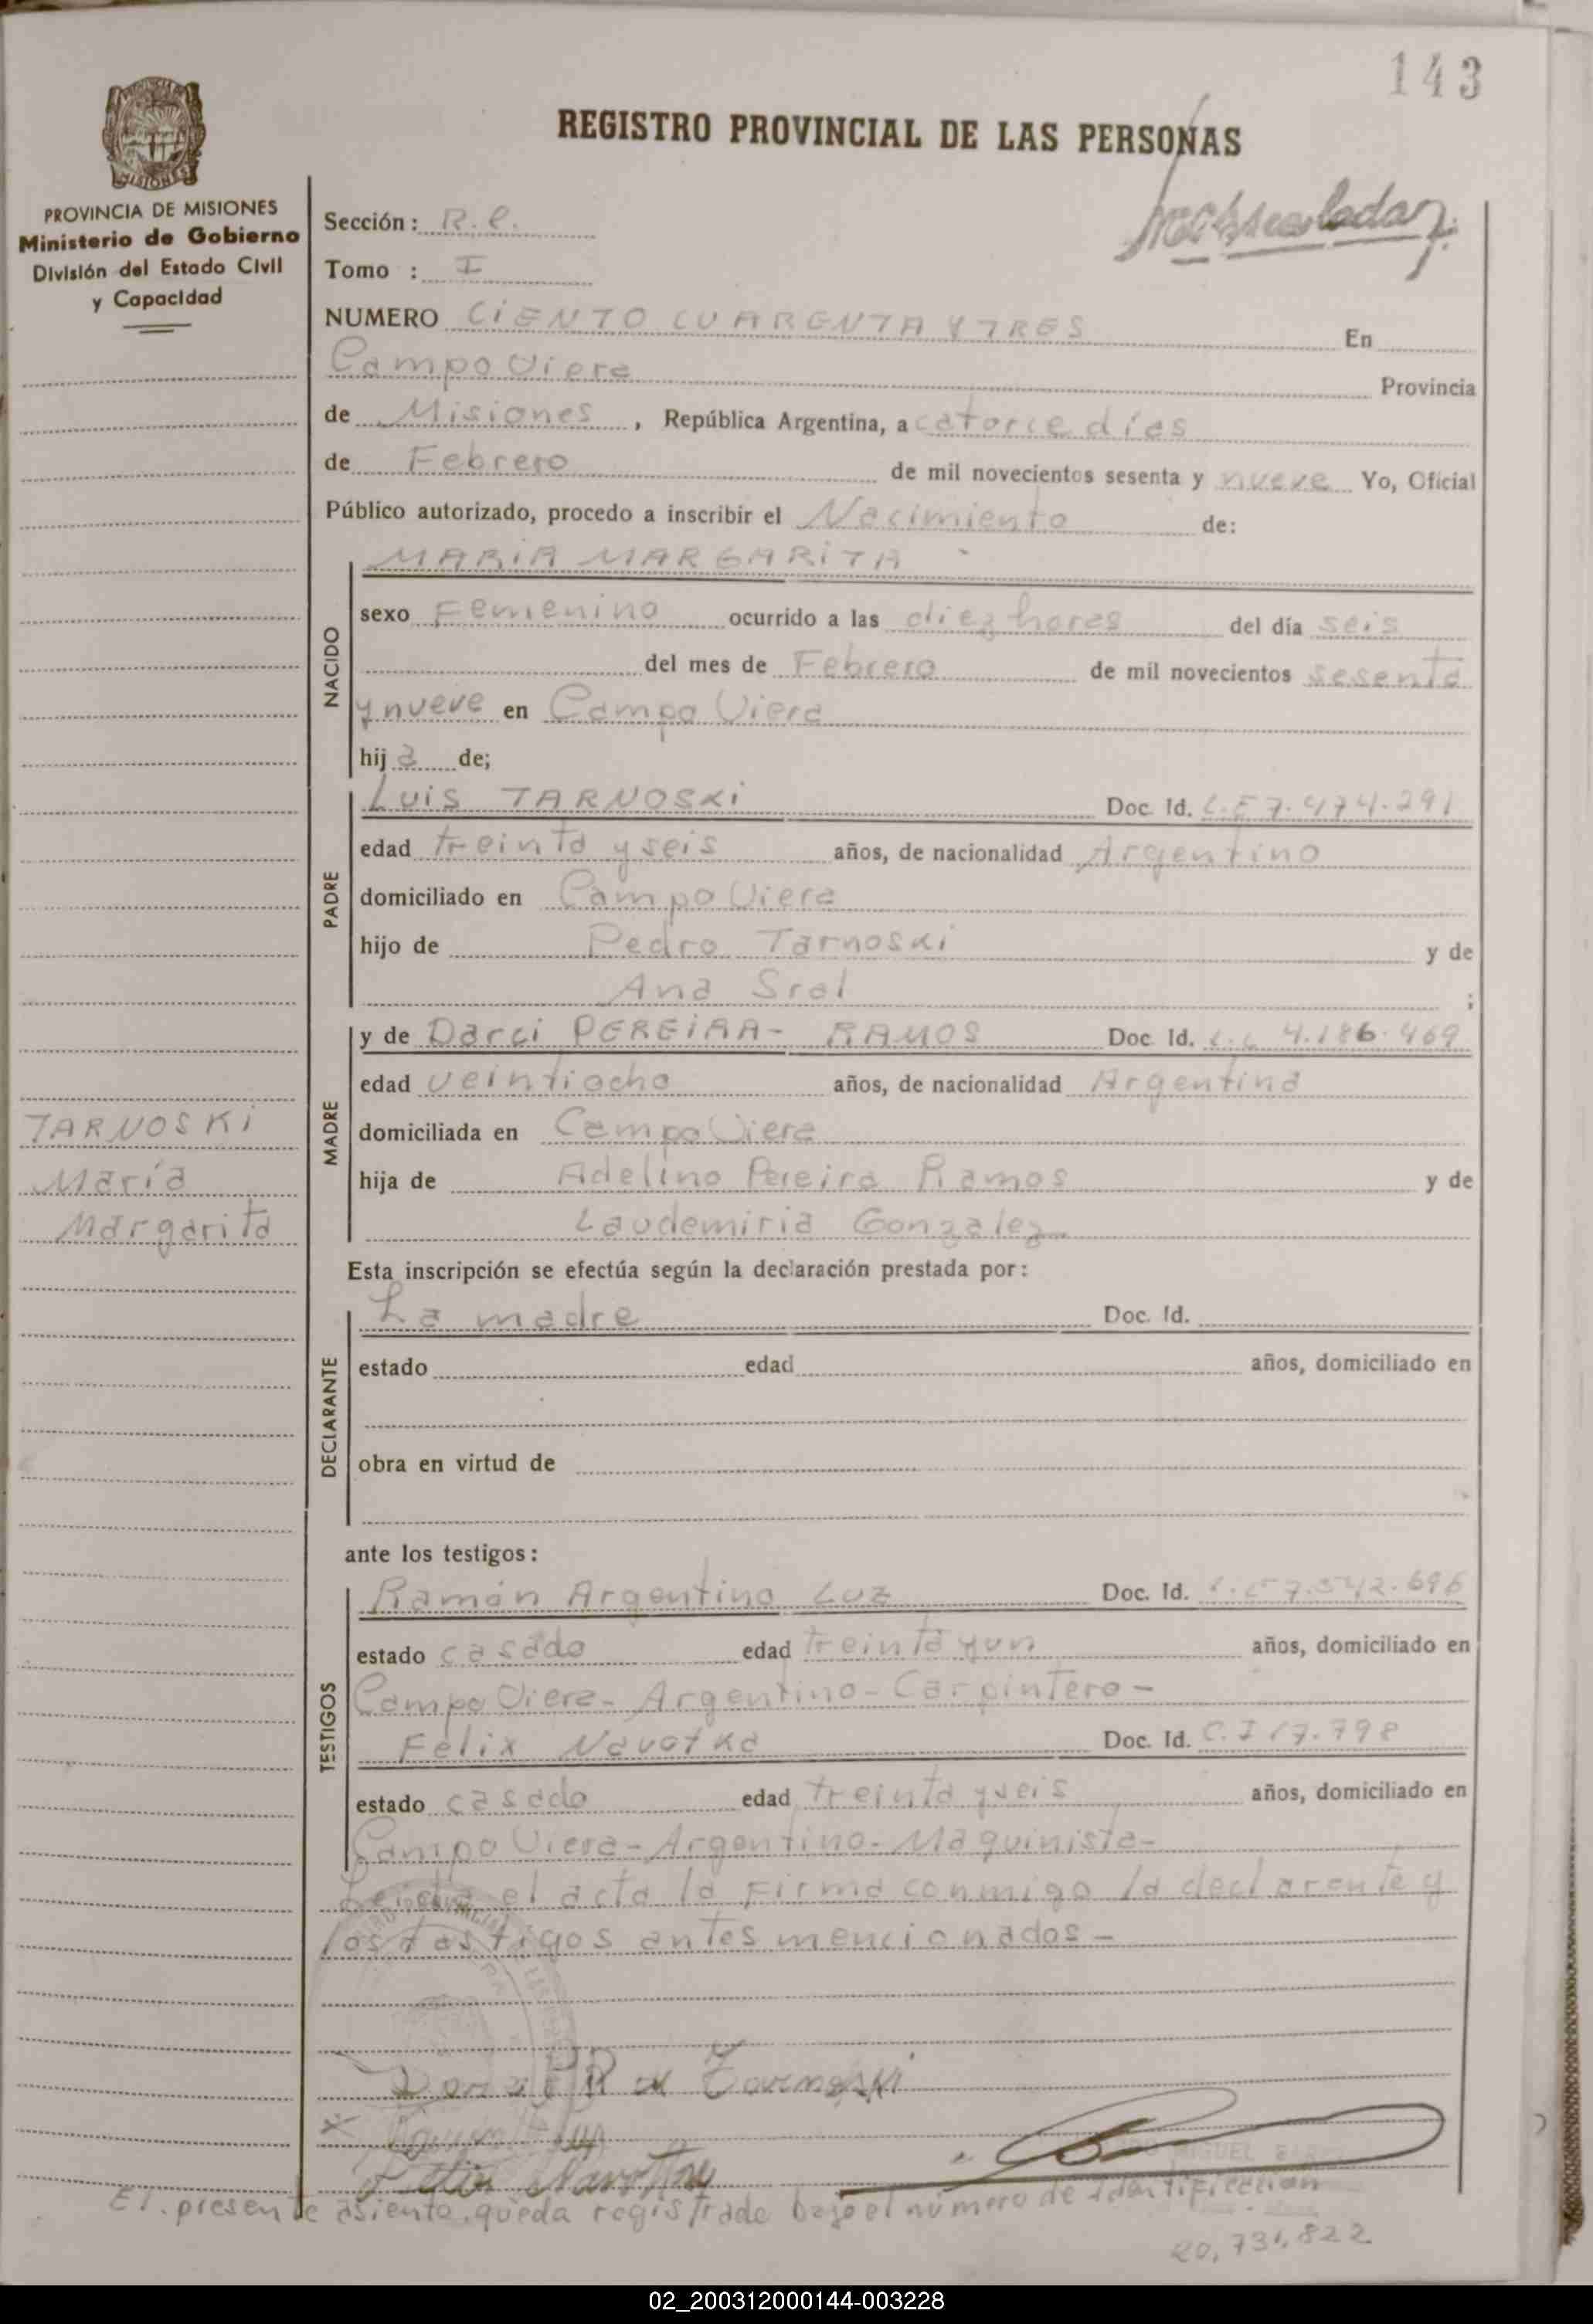 143
REGISTRO PROVINCIAL DE LAS PERSONAS
PROVINCIA DE MISIONES
Ministerio de Gobierno
División del Estado Civil
y Capacidad
Sección: R.C.
Tomo : I
NUMERO CIENTO CUARENTA Y TRES En
Campo Viera Provincia
de Misiones, República Argentina, a catorce días
de Febrero de mil novecientos sesenta y nueve Yo, Oficial
Público autorizado, procedo a inscribir el Nacimiento de:
NACIDO
MARIA MARGARITA
sexo Femenino ocurrido a las diez horas del día seis
del mes de Febrero de mil novecientos sesenta
y nueve en Campo Viera
hija de;
PADRE
Luis TARNOSKi Doc. Id. L.E 7.474.291
edad treinta y seis años, de nacionalidad Argentino
domiciliado en Campo Viera
hijo de Pedro Tarnoski y de
Ana Sral ;
MADRE
y de Darci PEREiRA- RAMOS Doc. Id. L.C 4.186.469
edad veintiocho años, de nacionalidad Argentina
domiciliada en Campo Viera
hija de Adelino Pereira Ramos y de
Laudemiria Gonzalez
TARNOSKi
María
Margarita
Esta inscripción se efectúa según la declaración prestada por:
DECLARANTE
La madre Doc. Id.
estado edad años, domiciliado en
obra en virtud de
ante los testigos:
TESTIGOS
Ramón Argentino Luz Doc. Id. L.E 7.542.696
estado casado edad treinta y un años, domiciliado en
Campo Viera- Argentino- Carpintero-
Felix Navotka Doc. Id. C.I 17.798
estado casado edad treinta y seis años, domiciliado en
Campo Viera- Argentino- Maquinista-
Leida el acta la firma conmigo la declarante y
los testigos antes mencionados-
Tarnoski
MIGUEL
El presente asiento queda registrado bajo el número de identificación
20,731,822
02_200312000144-003228